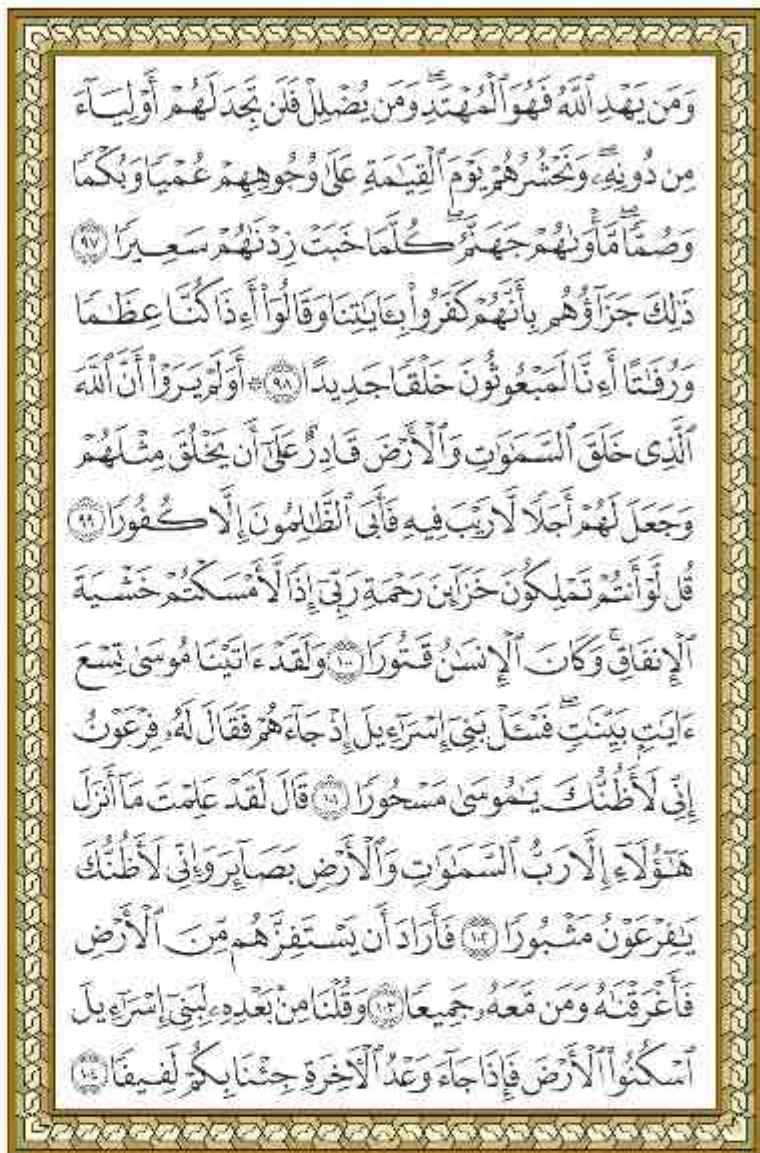 وَمَن يَهْدِ ٱللَّهُ فَهُوَ ٱلْمُهْتَدِۖ وَمَن يُضْلِلْ فَلَن تَجِدَ لَهُمْ أَوْلِيَآءَ
مِن دُونِهِۦۖ وَنَحْشُرُهُمْ يَوْمَ ٱلْقِيَـٰمَةِ عَلَىٰ وُجُوهِهِمْ عُمْيًا وَبُكْمًا
وَصُمًّاۖ مَّأْوَىٰهُمْ جَهَنَّمُۖ كُلَّمَا خَبَتْ زِدْنَـٰهُمْ سَعِيرًا ۝٩٧
ذَٰلِكَ جَزَآؤُهُم بِأَنَّهُمْ كَفَرُوا۟ بِـَٔايَـٰتِنَا وَقَالُوٓا۟ أَءِذَا كُنَّا عِظَـٰمًا
وَرُفَـٰتًا أَءِنَّا لَمَبْعُوثُونَ خَلْقًا جَدِيدًا ۝٩٨ ۞ أَوَلَمْ يَرَوْا۟ أَنَّ ٱللَّهَ
ٱلَّذِى خَلَقَ ٱلسَّمَـٰوَٰتِ وَٱلْأَرْضَ قَادِرٌ عَلَىٰٓ أَن يَخْلُقَ مِثْلَهُمْ
وَجَعَلَ لَهُمْ أَجَلًا لَّا رَيْبَ فِيهِ فَأَبَى ٱلظَّـٰلِمُونَ إِلَّا كُفُورًا ۝٩٩
قُل لَّوْ أَنتُمْ تَمْلِكُونَ خَزَآئِنَ رَحْمَةِ رَبِّىٓ إِذًا لَّأَمْسَكْتُمْ خَشْيَةَ
ٱلْإِنفَاقِۚ وَكَانَ ٱلْإِنسَـٰنُ قَتُورًا ۝١٠٠ وَلَقَدْ ءَاتَيْنَا مُوسَىٰ تِسْعَ
ءَايَـٰتٍۭ بَيِّنَـٰتٍۖ فَسْـَٔلْ بَنِىٓ إِسْرَٰٓءِيلَ إِذْ جَآءَهُمْ فَقَالَ لَهُۥ فِرْعَوْنُ
إِنِّى لَأَظُنُّكَ يَـٰمُوسَىٰ مَسْحُورًا ۝١٠١ قَالَ لَقَدْ عَلِمْتَ مَآ أَنزَلَ
هَـٰٓؤُلَآءِ إِلَّا رَبُّ ٱلسَّمَـٰوَٰتِ وَٱلْأَرْضِ بَصَآئِرَ وَإِنِّى لَأَظُنُّكَ
يَـٰفِرْعَوْنُ مَثْبُورًا ۝١٠٢ فَأَرَادَ أَن يَسْتَفِزَّهُم مِّنَ ٱلْأَرْضِ
فَأَغْرَقْنَـٰهُ وَمَن مَّعَهُۥ جَمِيعًا ۝١٠٣ وَقُلْنَا مِنۢ بَعْدِهِۦ لِبَنِىٓ إِسْرَٰٓءِيلَ
ٱسْكُنُوا۟ ٱلْأَرْضَ فَإِذَا جَآءَ وَعْدُ ٱلْـَٔاخِرَةِ جِئْنَا بِكُمْ لَفِيفًا ۝١٠٤